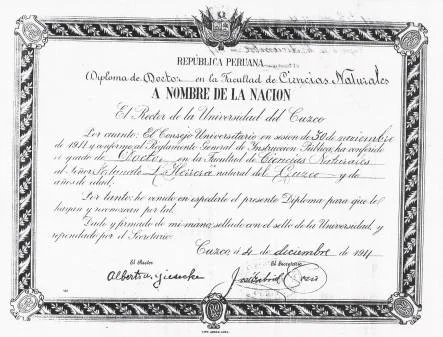 REPÚBLICA PERUANA
Diploma de Doctor en la Facultad de Ciencias Naturales
A NOMBRE DE LA NACION
El Rector de la Universidad del Cuzco
Por cuanto: El Consejo Universitario en sesion de 30 de noviembre
de 1911 y conforme al Reglamento General de Instruccion Pública, ha conferido
el grado de Doctor en la Facultad de Ciencias Naturales
al Señor Herrera natural del Cuzco y de
años de edad;
Por tanto: he venido en expedirle el presente Diploma para que lo
hayan y reconozcan por tal.
Dado y firmado de mi mano, sellado con el sello de la Universidad, y
refrendado por el Secretario.
Cuzco, á 4 de diciembre de 1911
El Rector El Secretario
Alberto A. Giesecke